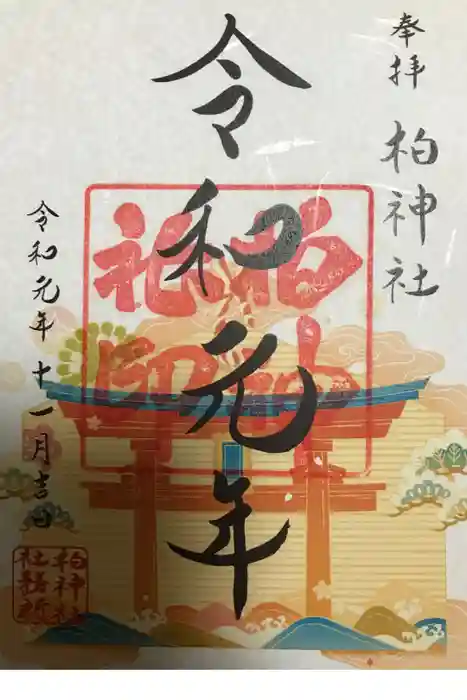 奉拝
柏神社
令和元年
令和元年 十一月吉日
柏神社印
柏神社
社務所